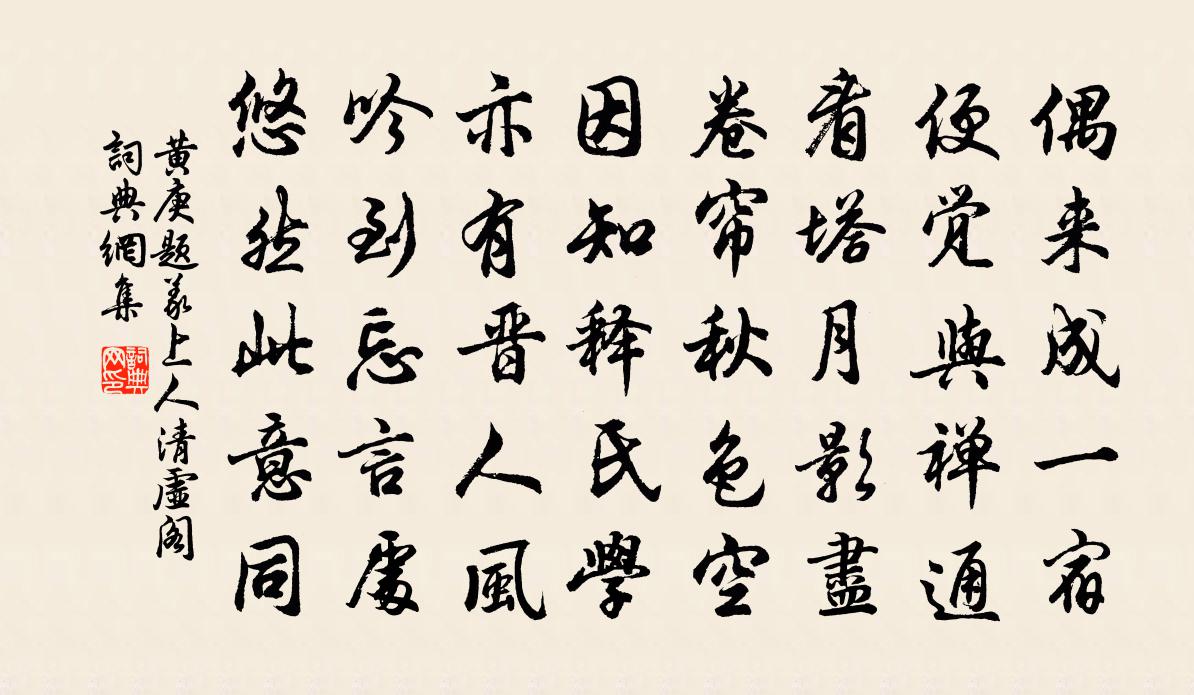 偶来成一宿
便觉與禅通
看塔月影盡
卷帘秋色空
因知释氏學
亦有晋人風
吟到忘言處
悠然此意同
黄庚题羕上人清虛阁
詞典網集
詞典网印